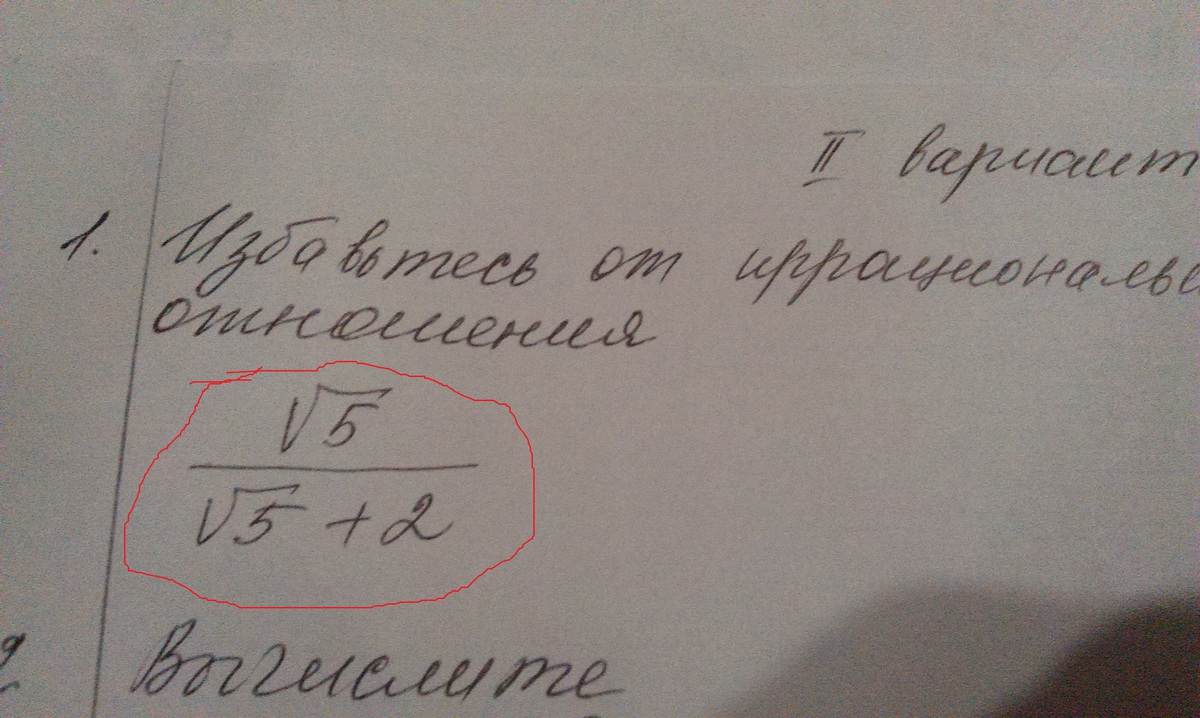 II вариант
1. Избавьтесь от иррациональ
отношения
√5
√5 + 2
Вычислите